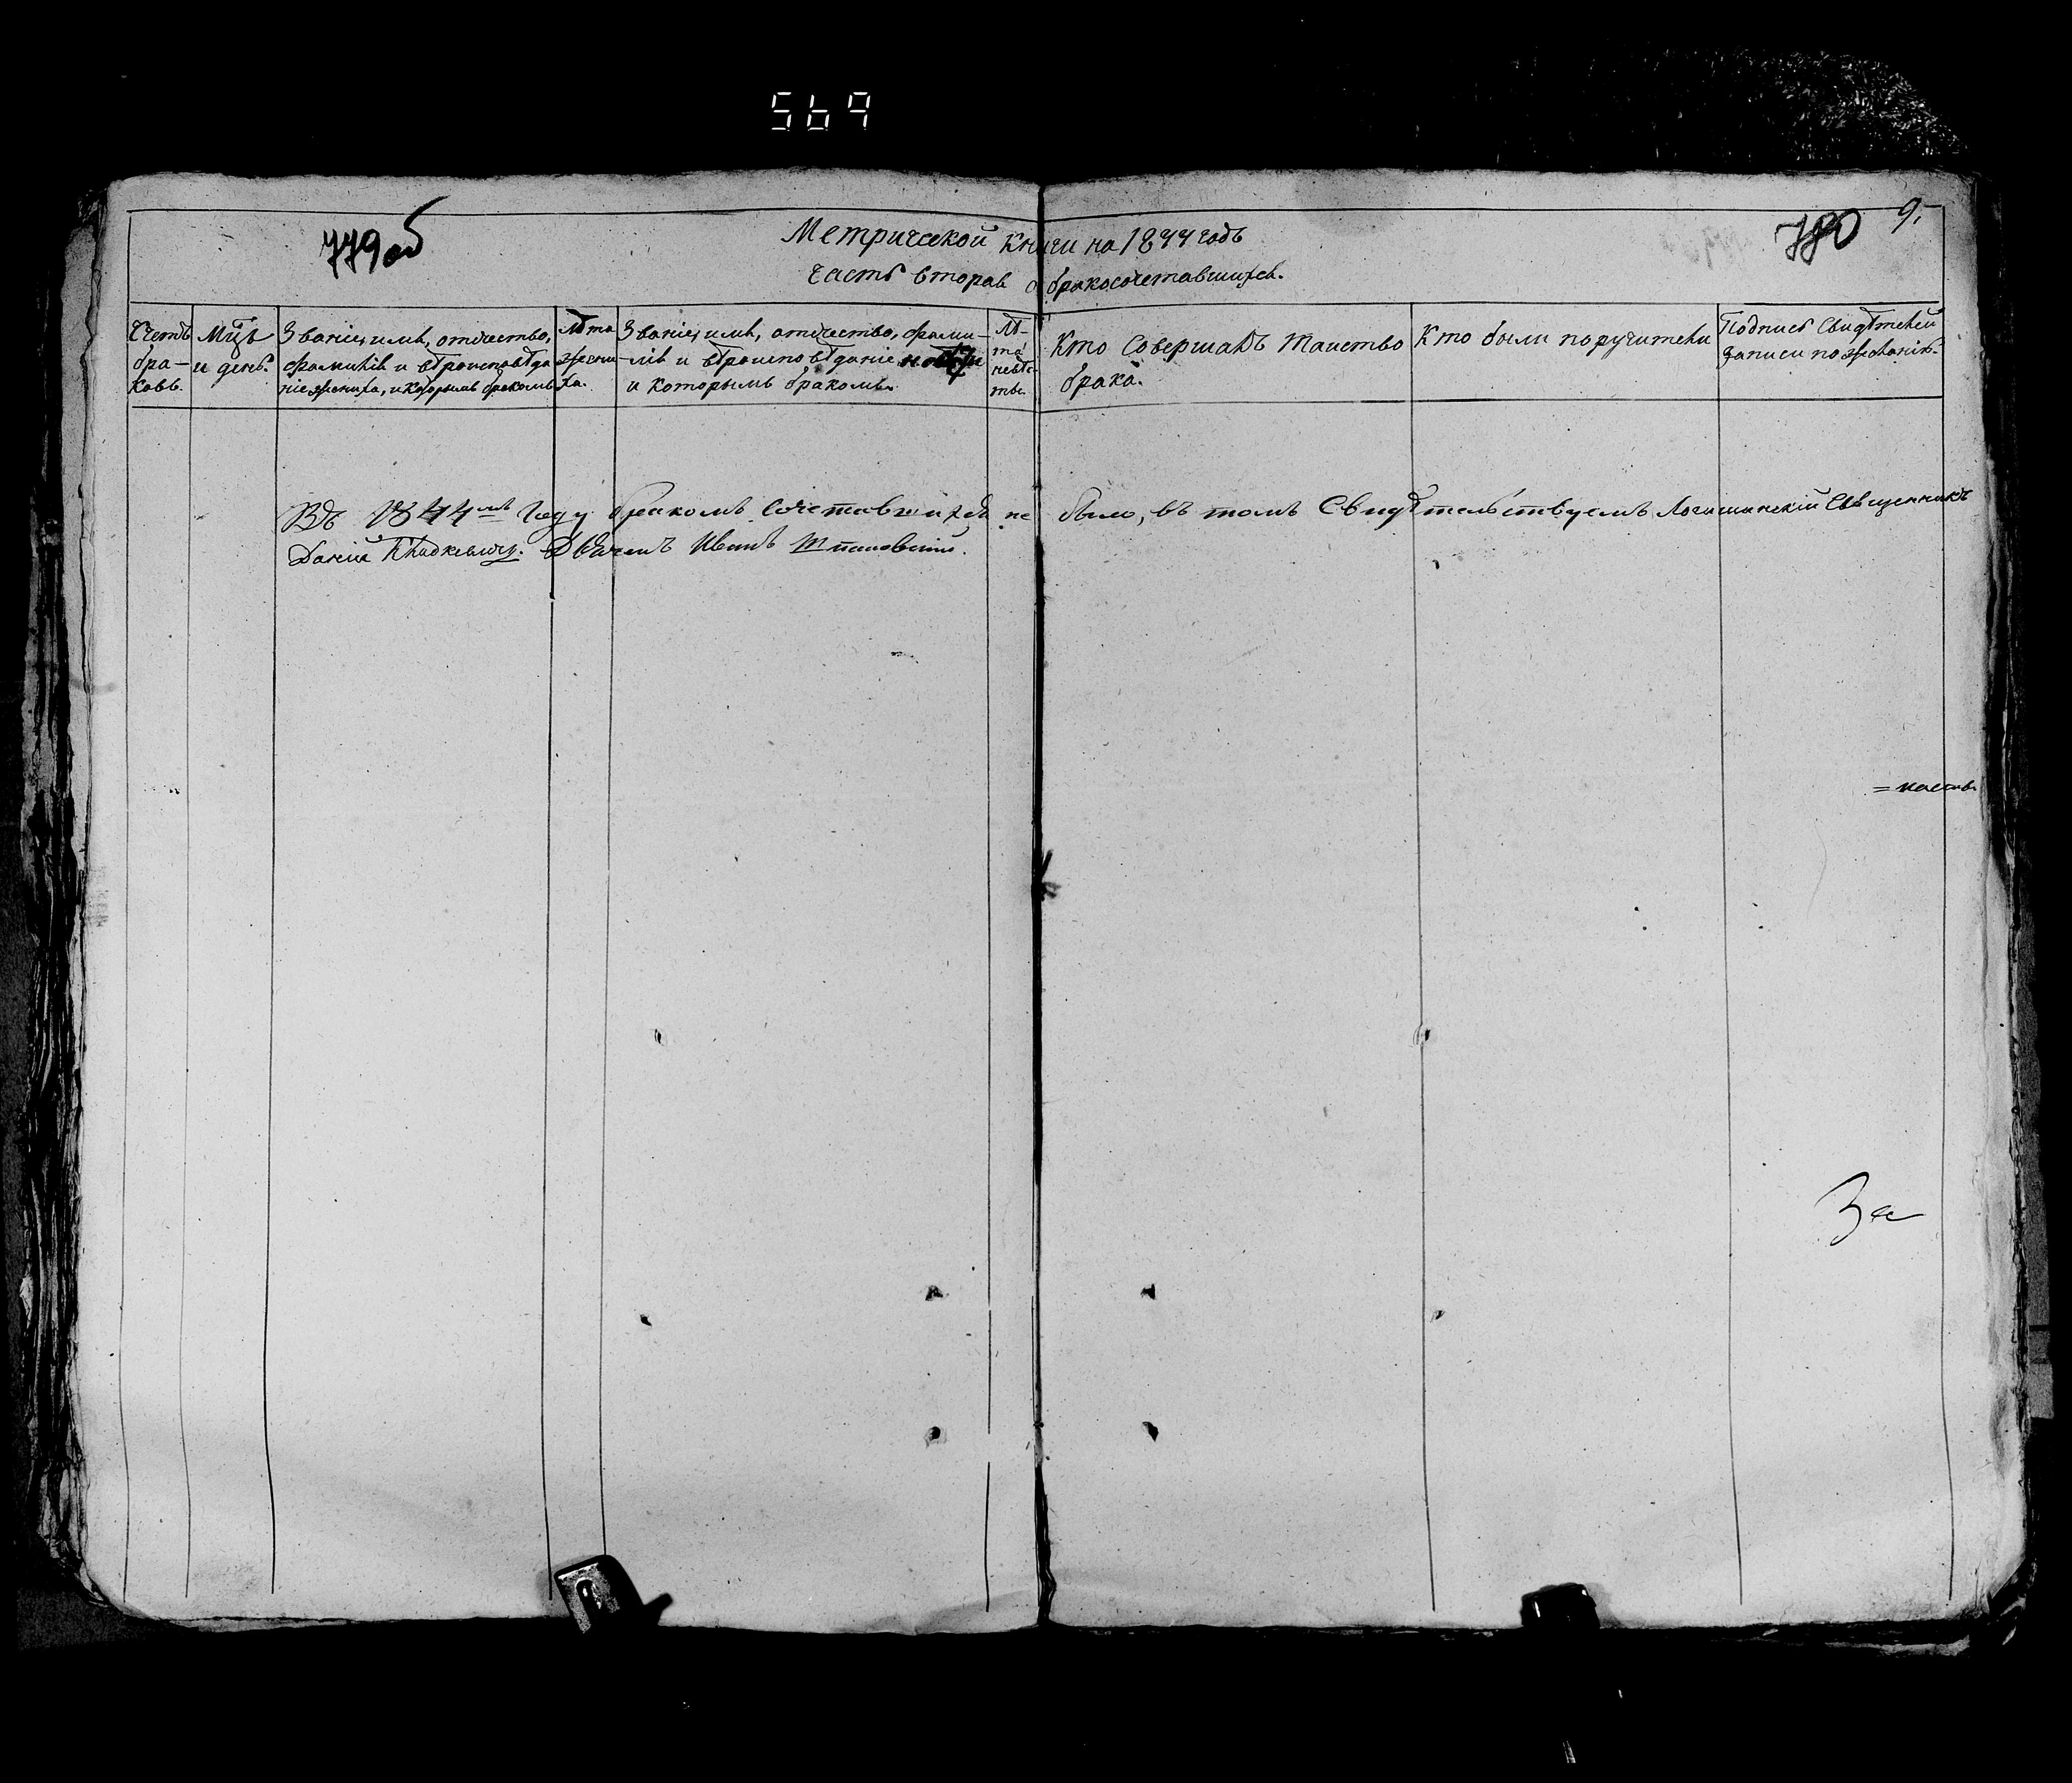 569
779 об
780
9.
Метрической книги на 1844 годъ
Часть вторая о бракосочетавшихся.
Счетъ бра- ковъ.
Мцъ и день.
Званіе, имя, отчество, фамилія и вѣроисповѣда ніе жениха, и которымъ бракомъ
Лѣта жени ха.
Званіе, имя, отчество, фами- -лія и вѣроисповѣданіе невѣсты и которымъ бракомъ.
Лѣ- та невѣс- ты.
Кто совершалъ таинство брака.
Кто были поручители
Подпись свидѣтелей записи по желанію.
Въ 1844мъ году бракомъ сочетавшихся не было, въ томъ свидѣтельствуемъ Логишинскій Священникъ
Даніил Дьячекъ Иванъ
За